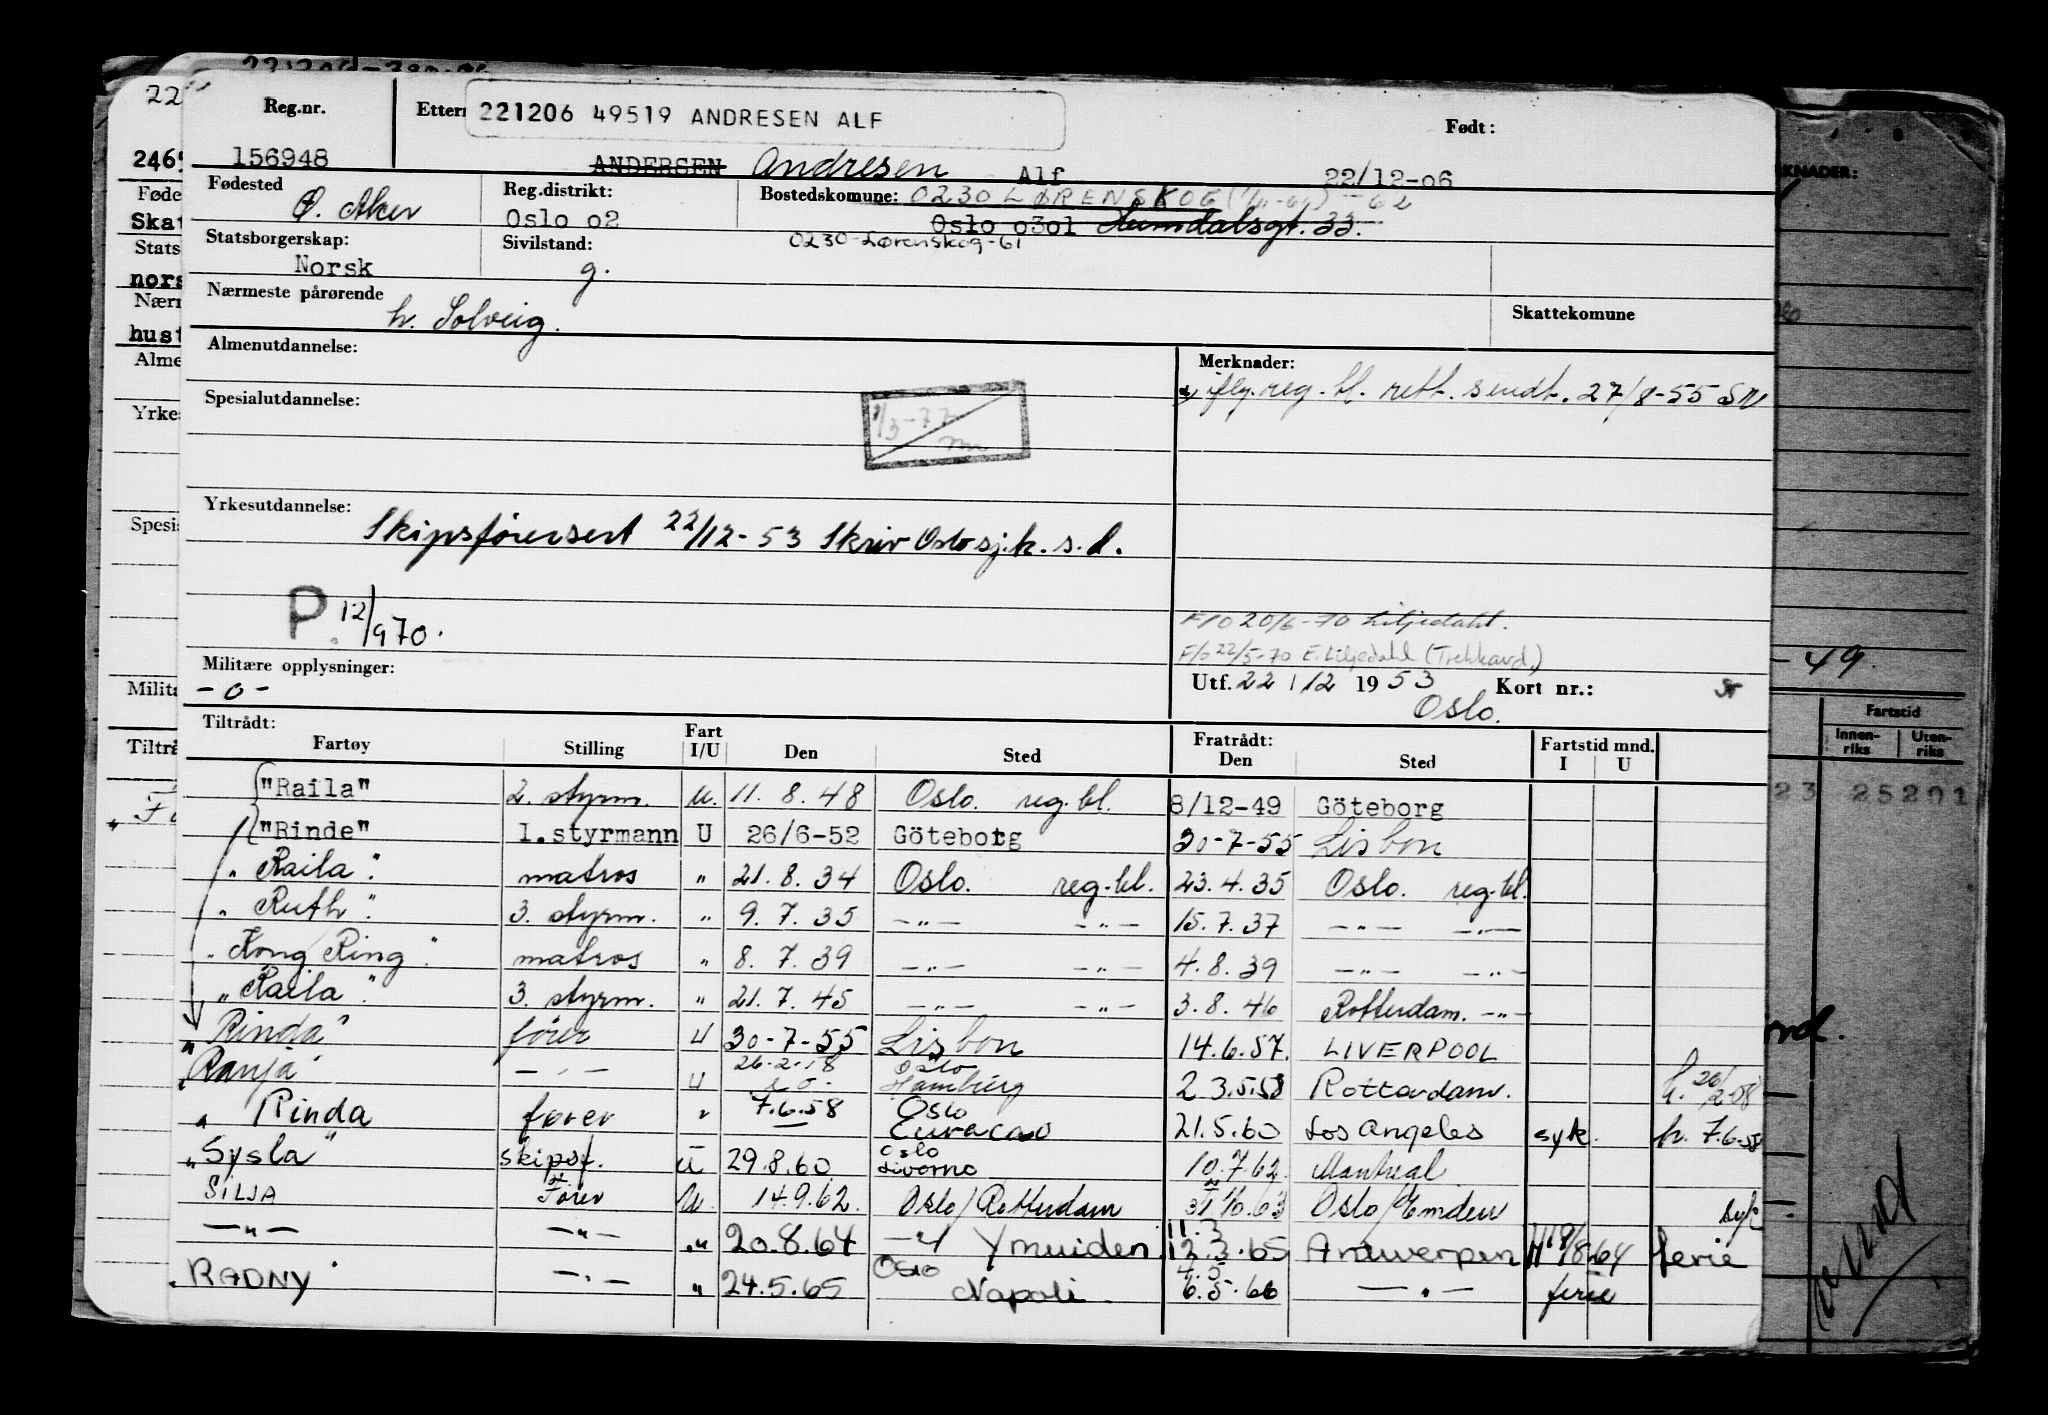 221206 49519 ANDRESEN ALF
Reg.nr. Ettern Født:
156948 ANDERSEN Andresen Alf 22/12-06
Fødested Reg.distrikt: Bostedskomune: 0230 LØRENSKOG
Ø. Aker Oslo 02 Oslo 0301 33.
Statsborgerskap: Sivilstand: 0230-Lørenskog-61
Norsk g.
Nærmeste pårørende Skattekomune
h. Solveig.
Almenutdannelse: Merknader:
reg. bl. rett. sendt. 27/8-55
Spesialutdannelse:
1/3-77
Yrkesutdannelse:
Skipsførersert 22/12-53 Skriv Oslo sj.k. s.d.
P. 12/970.
F/O 20/6-70 Liljedahl.
F/o 22/5-70 E. Liljedahl
Militære opplysninger: Utf. 22/12 1953 Kort nr.:
-o- Oslo.
Tiltrådt: Fratrådt:
Fartøy Stilling Fart I/U Den Sted Den Sted Fartstid mnd. I U
"Raila" 2. styrm. u. 11. 8. 48 Oslo. reg. bl. 8/12-49 Göteborg
"Rinde" 1. styrmann U 26/6-52 Göteborg 30-7-55 Lisbon
"Raila". matros " 21. 8. 34 Oslo. reg. bl. 23. 4. 35 Oslo. reg. bl.
"Ruth". 3. styrm. " 9. 7. 35 -"- -"- 15. 7. 37 -"- -"-
"Kong Ring". matros " 8. 7. 39 -"- -"- 4. 8. 39 -"- -"-
"Raila". 3. styrm. " 21. 7. 45 -"- -"- 3. 8. 46 Rotterdam. -"-
"Rinda" fører U 30-7-55 Lisbon 14.6.57. LIVERPOOL
"Ranja" -"- U 26.2.58 Oslo Hamburg 2 3.5.58 Rotterdam. h. 26/2-58
" Rinda fører " 7.6.58 Oslo Curacao 21.5.60 Los Angeles syk. h. 7.6-58
"Sysla" skipsf. U 29.8.60 Oslo Livorno 10.7.62 Montreal
SILJA Fører U. 14.9.62. Oslo/Rotterdam 31/10.63 Oslo/Emden syk
-"- -"- " 20.8.64 -"- Ymuiden 11.3 12.3.65 Antwerpen H 19/8 64 ferie
RADNY -"- " 24.5.65 Oslo Napoli 4.5 6.5.66 -"- ferie
2246
Føde
Skat
Stats
nors
Nærm
hust
Alme
Yrkes
Spesia
Milita
Tiltrå
-49.
Fartstid
Innenriks Utenriks
23 25201